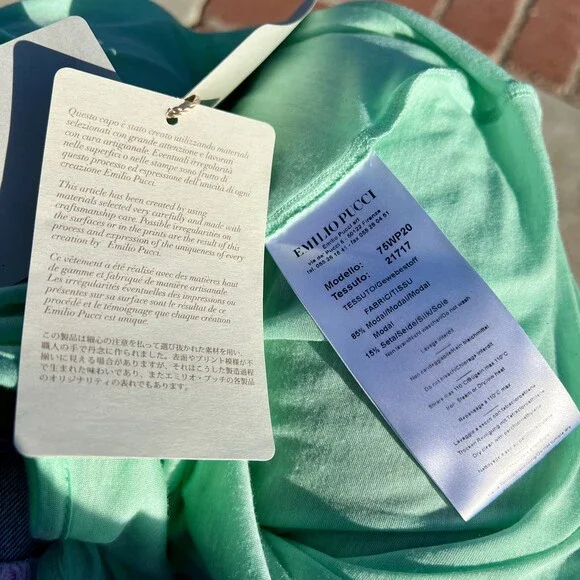 Questo capo è stato creato utilizzando materiali
selezionati con grande attenzione e lavorati
con cura artigianale. Eventuali irregolarità
nelle superfici o nelle stampe sono frutto di
questo processo ed espressione dell'unicità di ogni
creazione Emilio Pucci.
This article has been created by using
materials selected very carefully and made with
craftsmanship care. Possible irregularities on
the surfaces or in the prints are the result of this
process and expression of the uniqueness of every
creation by Emilio Pucci.
Ce vêtement a été réalisé avec des matières haut
de gamme et fabriqué de manière artisanale.
Les irrégularités éventuelles des impressions ou
présentes sur sa surface sont le résultat de ce
procédé et le témoignage que chaque création
Emilio Pucci est unique.
この製品は細心の注意を払って選び抜かれた素材を用い、
職人の手で丹念に作られました。表面やプリント模様が不
揃いに見える場合がありますが、それはこうした製造過程
で生まれた味わいであり、またエミリオ・プッチの各製品
のオリジナリティの表れでもあります。
EMILIO PUCCI
Emilio Pucci srl
via de' Pucci 6 - 50122 Firenze
tel. 055 26 18 41 - fax 055 28 04 51
Modello: 75WP20
Tessuto: 21717
TESSUTO/Gewebestoff
FABRIC/TISSU
85% Modal/Modal/Modal
15% Seta/Seide/Silk/Soie
Non lavare/Nicht waschen/Do not wash
Lavage interdit
Non candeggiare/Nicht bleichen
Do not bleach/Chlorage interdit
Stirare max 110°C/Bügeln max
Iron, Steam or Dry, low heat
Repassage a 110°C max